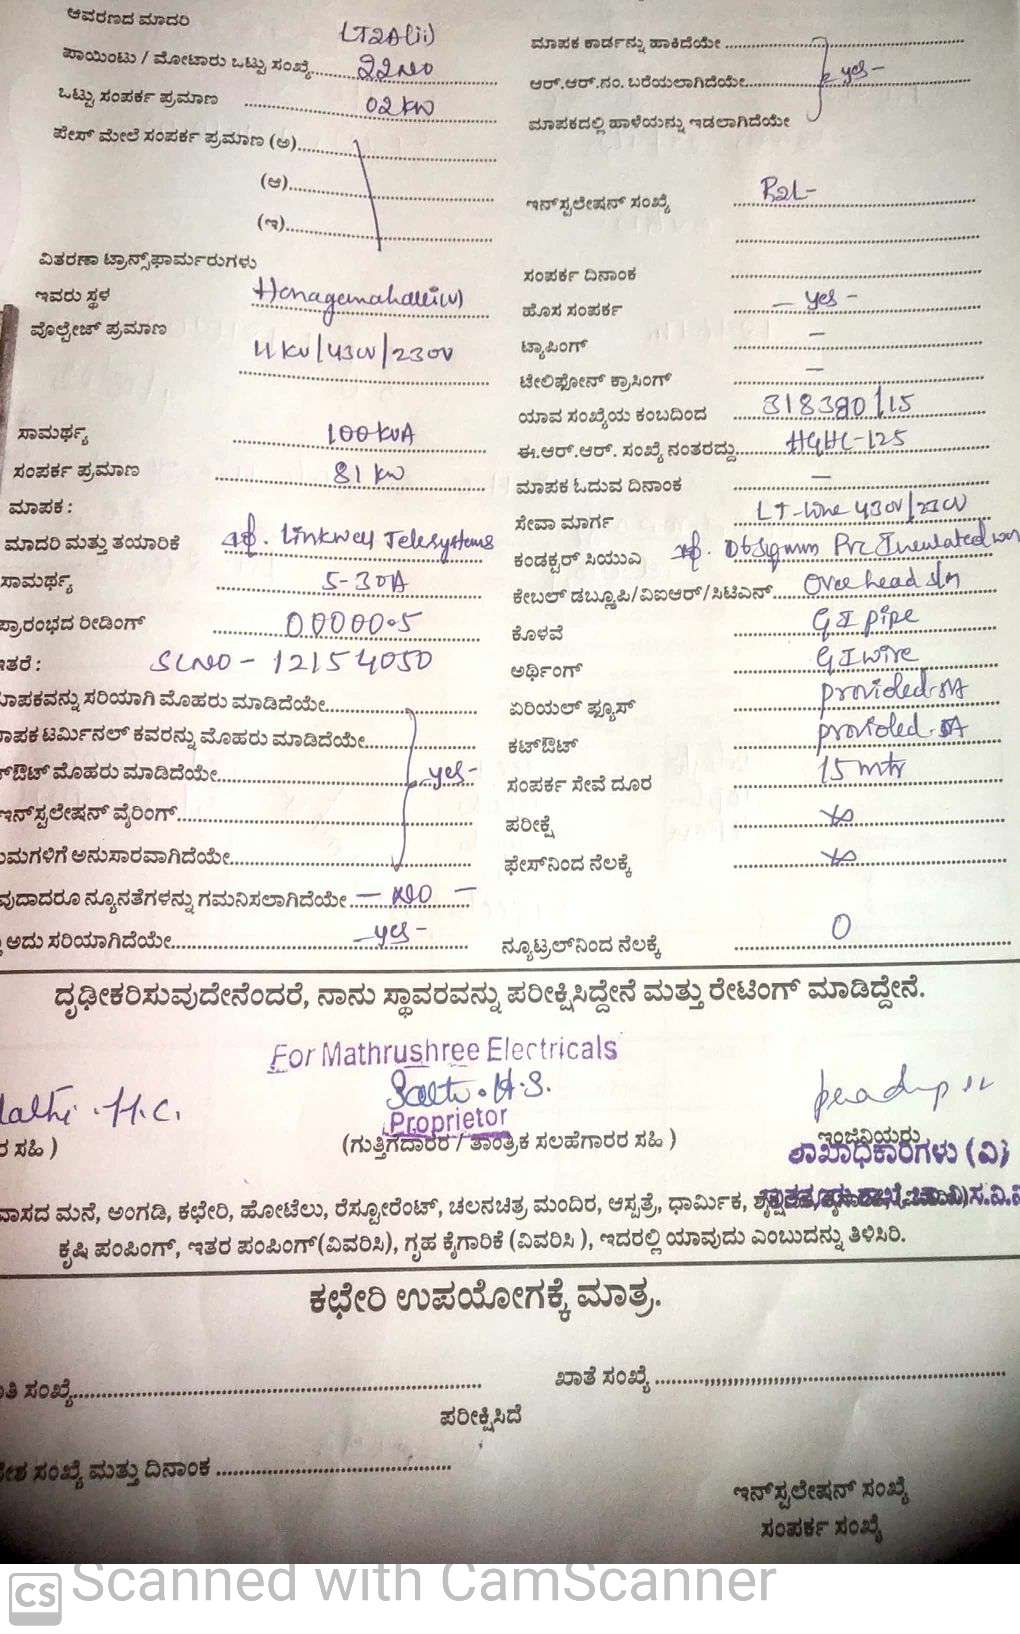 ಆವರಣದ ಮಾದರಿ LT2A(ii)
ಪಾಯಿಂಟು / ಮೋಟಾರು ಒಟ್ಟು ಸಂಖ್ಯೆ 22No
ಒಟ್ಟು ಸಂಪರ್ಕ ಪ್ರಮಾಣ 02 kw
ಪೇಸ್ ಮೇಲೆ ಸಂಪರ್ಕ ಪ್ರಮಾಣ (ಅ)
(ಆ)
(ಇ)
ವಿತರಣಾ ಟ್ರಾನ್ಸ್‌ಫಾರ್ಮರುಗಳು
ಇವರು ಸ್ಥಳ
ವೊಲ್ಟೇಜ್ ಪ್ರಮಾಣ
11 KV/430V/230V
ಸಾಮರ್ಥ್ಯ 100 KVA
ಸಂಪರ್ಕ ಪ್ರಮಾಣ 81 kw
ಮಾಪಕ :
ಮಾದರಿ ಮತ್ತು ತಯಾರಿಕೆ Linkwell Telesystems
ಸಾಮರ್ಥ್ಯ 5-30A
ಪ್ರಾರಂಭದ ರೀಡಿಂಗ್ 00000.5
ಇತರೆ : SLNO - 12154050
ಮಾಪಕವನ್ನು ಸರಿಯಾಗಿ ಮೊಹರು ಮಾಡಿದೆಯೇ
ಮಾಪಕ ಟರ್ಮಿನಲ್ ಕವರನ್ನು ಮೊಹರು ಮಾಡಿದೆಯೇ
ಔಟ್ ಮೊಹರು ಮಾಡಿದೆಯೇ yes -
ಇನ್‌ಸ್ಟಲೇಷನ್ ವೈರಿಂಗ್
ಅನುಸಾರವಾಗಿದೆಯೇ
ನ್ಯೂನತೆಗಳನ್ನು ಗಮನಿಸಲಾಗಿದೆಯೇ - NO -
ಅದು ಸರಿಯಾಗಿದೆಯೇ - yes -
ಮಾಪಕ ಕಾರ್ಡನ್ನು ಹಾಕಿದೆಯೇ
ಆರ್.ಆರ್.ನಂ. ಬರೆಯಲಾಗಿದೆಯೇ yes -
ಮಾಪಕದಲ್ಲಿ ಹಾಳೆಯನ್ನು ಇಡಲಾಗಿದೆಯೇ
ಇನ್‌ಸ್ಟಲೇಷನ್ ಸಂಖ್ಯೆ
ಸಂಪರ್ಕ ದಿನಾಂಕ
ಹೊಸ ಸಂಪರ್ಕ - yes -
ಟ್ಯಾಪಿಂಗ್ -
ಟೇಲಿಫೋನ್ ಕ್ರಾಸಿಂಗ್ -
ಯಾವ ಸಂಖ್ಯೆಯ ಕಂಬದಿಂದ 318390/15
ಈ.ಆರ್.ಆರ್. ಸಂಖ್ಯೆ ನಂತರದ್ದು HGHL-125
ಮಾಪಕ ಓದುವ ದಿನಾಂಕ -
ಸೇವಾ ಮಾರ್ಗ LT-line 430V/230V
ಕಂಡಕ್ಟರ್ ಸಿಯುಎ 06sqmm Pvc Insulated
ಕೇಬಲ್ ಡಬ್ಲ್ಯೂಪಿ/ವಿಐಆರ್/ಸಿಟಿಎನ್ Over head
ಕೊಳವೆ GI pipe
ಅರ್ಥಿಂಗ್ GI wire
ಏರಿಯಲ್ ಫ್ಯೂಸ್ provided
ಕಟ್‌ಔಟ್ provided
ಸಂಪರ್ಕ ಸೇವೆ ದೂರ 15 mtr
ಪರೀಕ್ಷೆ
ಫೇಸ್‌ನಿಂದ ನೆಲಕ್ಕೆ
ನ್ಯೂಟ್ರಲ್‌ನಿಂದ ನೆಲಕ್ಕೆ 0
ದೃಢೀಕರಿಸುವುದೇನೆಂದರೆ, ನಾನು ಸ್ಥಾವರವನ್ನು ಪರೀಕ್ಷಿಸಿದ್ದೇನೆ ಮತ್ತು ರೇಟಿಂಗ್ ಮಾಡಿದ್ದೇನೆ.
For Mathrushree Electricals
H.C.
H.S.
Proprietor
ಸಹಿ )
(ಗುತ್ತಿಗೆದಾರರ / ತಾಂತ್ರಿಕ ಸಲಹೆಗಾರರ ಸಹಿ )
ಇಂಜಿನಿಯರು
ಶಾಖಾಧಿಕಾರಿಗಳು (ವಿ)
ವಾಸದ ಮನೆ, ಅಂಗಡಿ, ಕಛೇರಿ, ಹೋಟೆಲು, ರೆಸ್ಟೋರೆಂಟ್, ಚಲನಚಿತ್ರ ಮಂದಿರ, ಆಸ್ಪತ್ರೆ, ಧಾರ್ಮಿಕ,
ಕೃಷಿ ಪಂಪಿಂಗ್, ಇತರ ಪಂಪಿಂಗ್(ವಿವರಿಸಿ), ಗೃಹ ಕೈಗಾರಿಕೆ (ವಿವರಿಸಿ ), ಇದರಲ್ಲಿ ಯಾವುದು ಎಂಬುದನ್ನು ತಿಳಿಸಿರಿ.
ಕಛೇರಿ ಉಪಯೋಗಕ್ಕೆ ಮಾತ್ರ.
ಸಂಖ್ಯೆ
ಖಾತೆ ಸಂಖ್ಯೆ
ಪರೀಕ್ಷಿಸಿದೆ
ಸಂಖ್ಯೆ ಮತ್ತು ದಿನಾಂಕ
ಇನ್‌ಸ್ಟಲೇಷನ್ ಸಂಖ್ಯೆ
ಸಂಪರ್ಕ ಸಂಖ್ಯೆ
CS Scanned with CamScanner